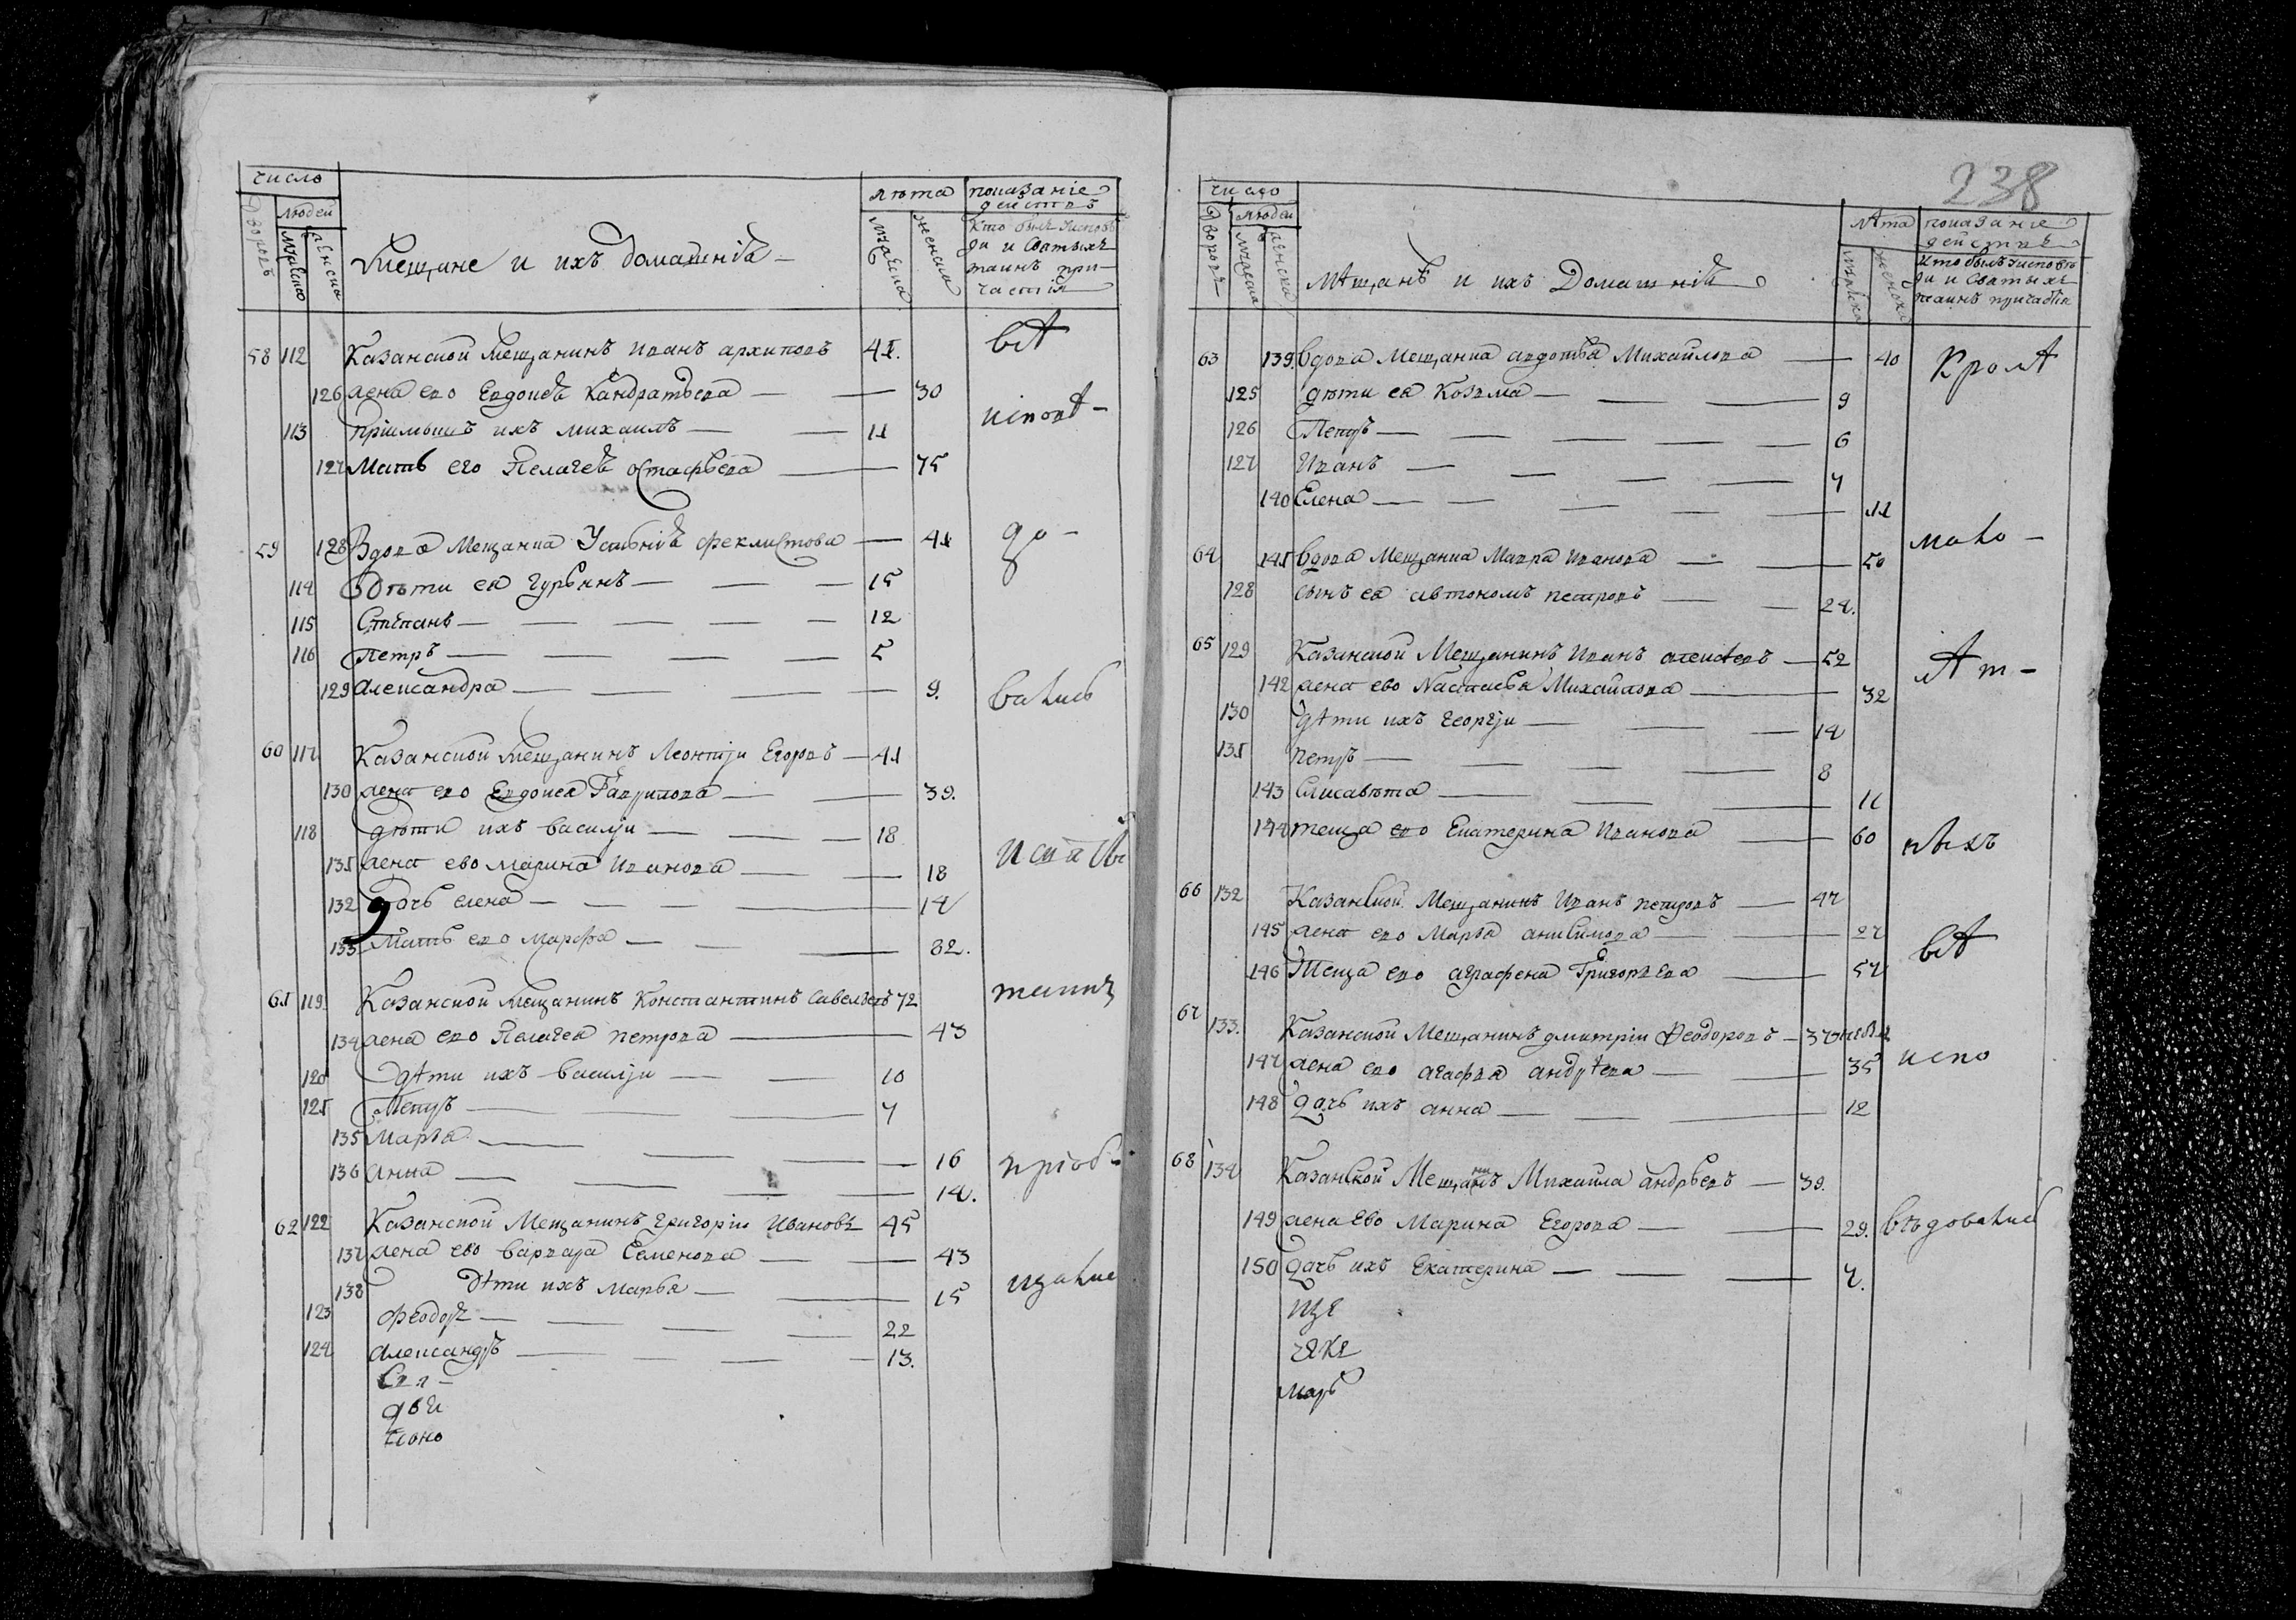 число
лѣта показанiе
дѣйствъ
дворовъ
людей
мужеска
женска
Мещане и ихъ домашнiѣ
мужеска
женска
Кто былъ уиспов
ди и Святыхъ
таинъ при-
частiя
58 112 Казанской Мещанинъ Иванъ архиповъ 41. всѣ
126 жена его Евдокеѣ Кандратьева 30
113 Прiимышъ ихъ михаилъ 11 исповѣ-
127 Мать его Пелагеѣ Остафьева 75
59 128 Вдова Мещанка Устьнiѣ феклистова 41 до-
114 Дѣти ея гурьянъ 15
115 Степанъ 12
116 Петръ 5
129 Александра 9. вались
60 117 Казанской Мещанинъ Леонтiи Егоровъ 41
130 жена ево Евдокея Гаврилова 39.
118 дѣти ихъ василiи 18
131 жена ево марина Иванова 18 и свя
132 дочь елена 14
133 Мать ево марфа 82.
61 119 Казанской Мещанинъ Константинъ савельевъ 72 таинъ
134 жена ево Пелагея петрова 43
120 дѣти ихъ василiи 10
121 Петръ 7
135 Марья 16
136 анна 14. прiоб-
62 122 Казанской Мещанинъ григорiи Ивановъ 45
137 жена ево варвара Семенова 43
138 дѣти ихъ марья 15 щались
123 феодоръ 22
124 александръ 13.
Свя-
238
число
лѣта показанiе
дѣйствъ
дворовъ
людей
мужеска
женска
мѣщанѣ и ихъ Домашнiѣ
мужеска
женска
Кто былъ уисповѣ
ди и Святыхъ
таинъ причастiя
63 139. вдова Мещанка авдотья Михайлова 40 Кромѣ
125 дѣти ея Козма 9
126 Петръ 6
127 Иванъ 4
140 Елена 11
64 141 вдова Мещанка Мавра Иванова 50 мало-
128 сынъ ея автономъ петровъ 24.
65 129 Казанской Мещанинъ Иванъ алексѣевъ 52
142 жена ево Настасья Михайлова 32 лѣт-
130 дѣти ихъ георгiи 14
131 петръ 8
143 Елисавѣта 11
144 теща ево Екатерина Иванова 60 нѣхъ
66 132 Казанской Мещанинъ Иванъ петровъ 47
145 жена ево Марья анисимова 27 всѣ
146 Теща ево аграфена Григорьева 57
67 133. Казанской Мещанинъ дмитрiи Феодоровъ 37
147 жена ево агафья андрѣева 35 испо
148 дочь ихъ анна 12
68 134 Казанской Мещанинъ Михаила андрѣевъ 39.
149 жена Ево Марина Егорова 29. вѣдовались
150 дочь ихъ Екатерина 7.